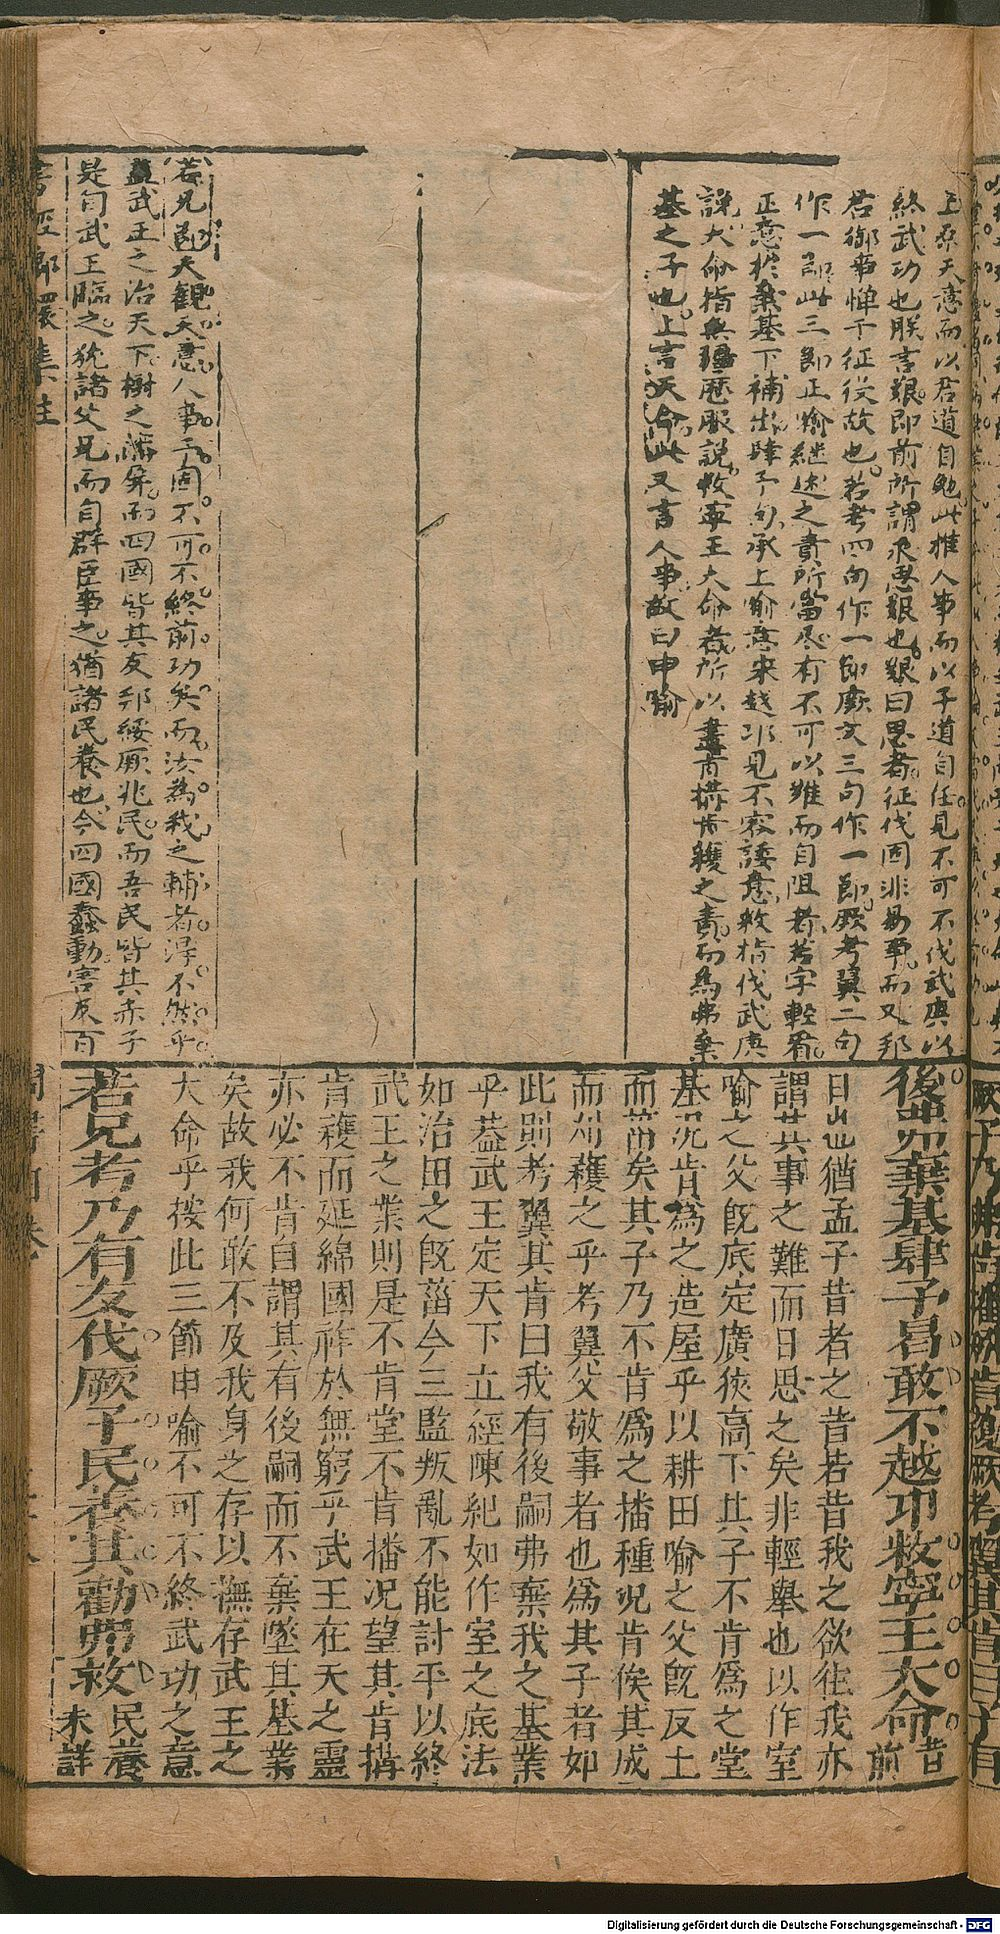 上原天意而以君道自勉此推人事而以子道自任見不可不伐武庚以
終武功也朕言艱即前所謂永思艱也艱曰思者征伐固非易事而又邦
君御事憚于征役故也若考四句作一節厥父三句作一節厥考翼二句
作一節此三節正喻繼述之責所當尽有不可以難而自阻者若字輕看
正意於棄基下補出肆予句承上喻意來越卬見不容諉意敉指伐武庚
說大命指無疆歷服說敉寧王大命者所以盡肯構肯穫之責而為弗棄
基之子也上言天命此又言人事故曰申喻
若兄節大觀天意人事予固不可不終前功矣而汝為我之輔者得不然乎
蓋武王之治天下樹之藩屏而四國皆其友邦綏厥兆民而吾民皆其赤子
是自武王臨之犹諸父兄而自群臣事之猶諸民養也今四國蠢動害及百
後弗棄基肆予曷敢不越卬敉寧王大命昔前
日也猶孟子昔者之昔若昔我之欲往我亦
謂其事之難而日思之矣非輕舉也以作室
喻之父旣底定廣狹高下其子不肯爲之堂
基況肯爲之造屋乎以耕田喻之父旣反土
而菑矣其子乃不肯爲之播種況肯俟其成
而刈穫之乎考翼父敬事者也爲其子者如
此則考翼其肯曰我有後嗣弗棄我之基業
乎蓋武王定天下立經陳紀如作室之底法
如治田之旣菑今三監叛亂不能討平以終
武王之業則是不肯堂不肯播況望其肯構
肯穫而延綿國祚於無窮乎武王在天之靈
亦必不肯自謂其有後嗣而不棄墜其基業
矣故我何敢不及我身之存以撫存武王之
大命乎按此三節申喻不可不終武功之意
若兄考乃有友伐厥子民養其勸弗救民養未詳
Digitalisierung gefördert durch die Deutsche Forschungsgemeinschaft - DFG